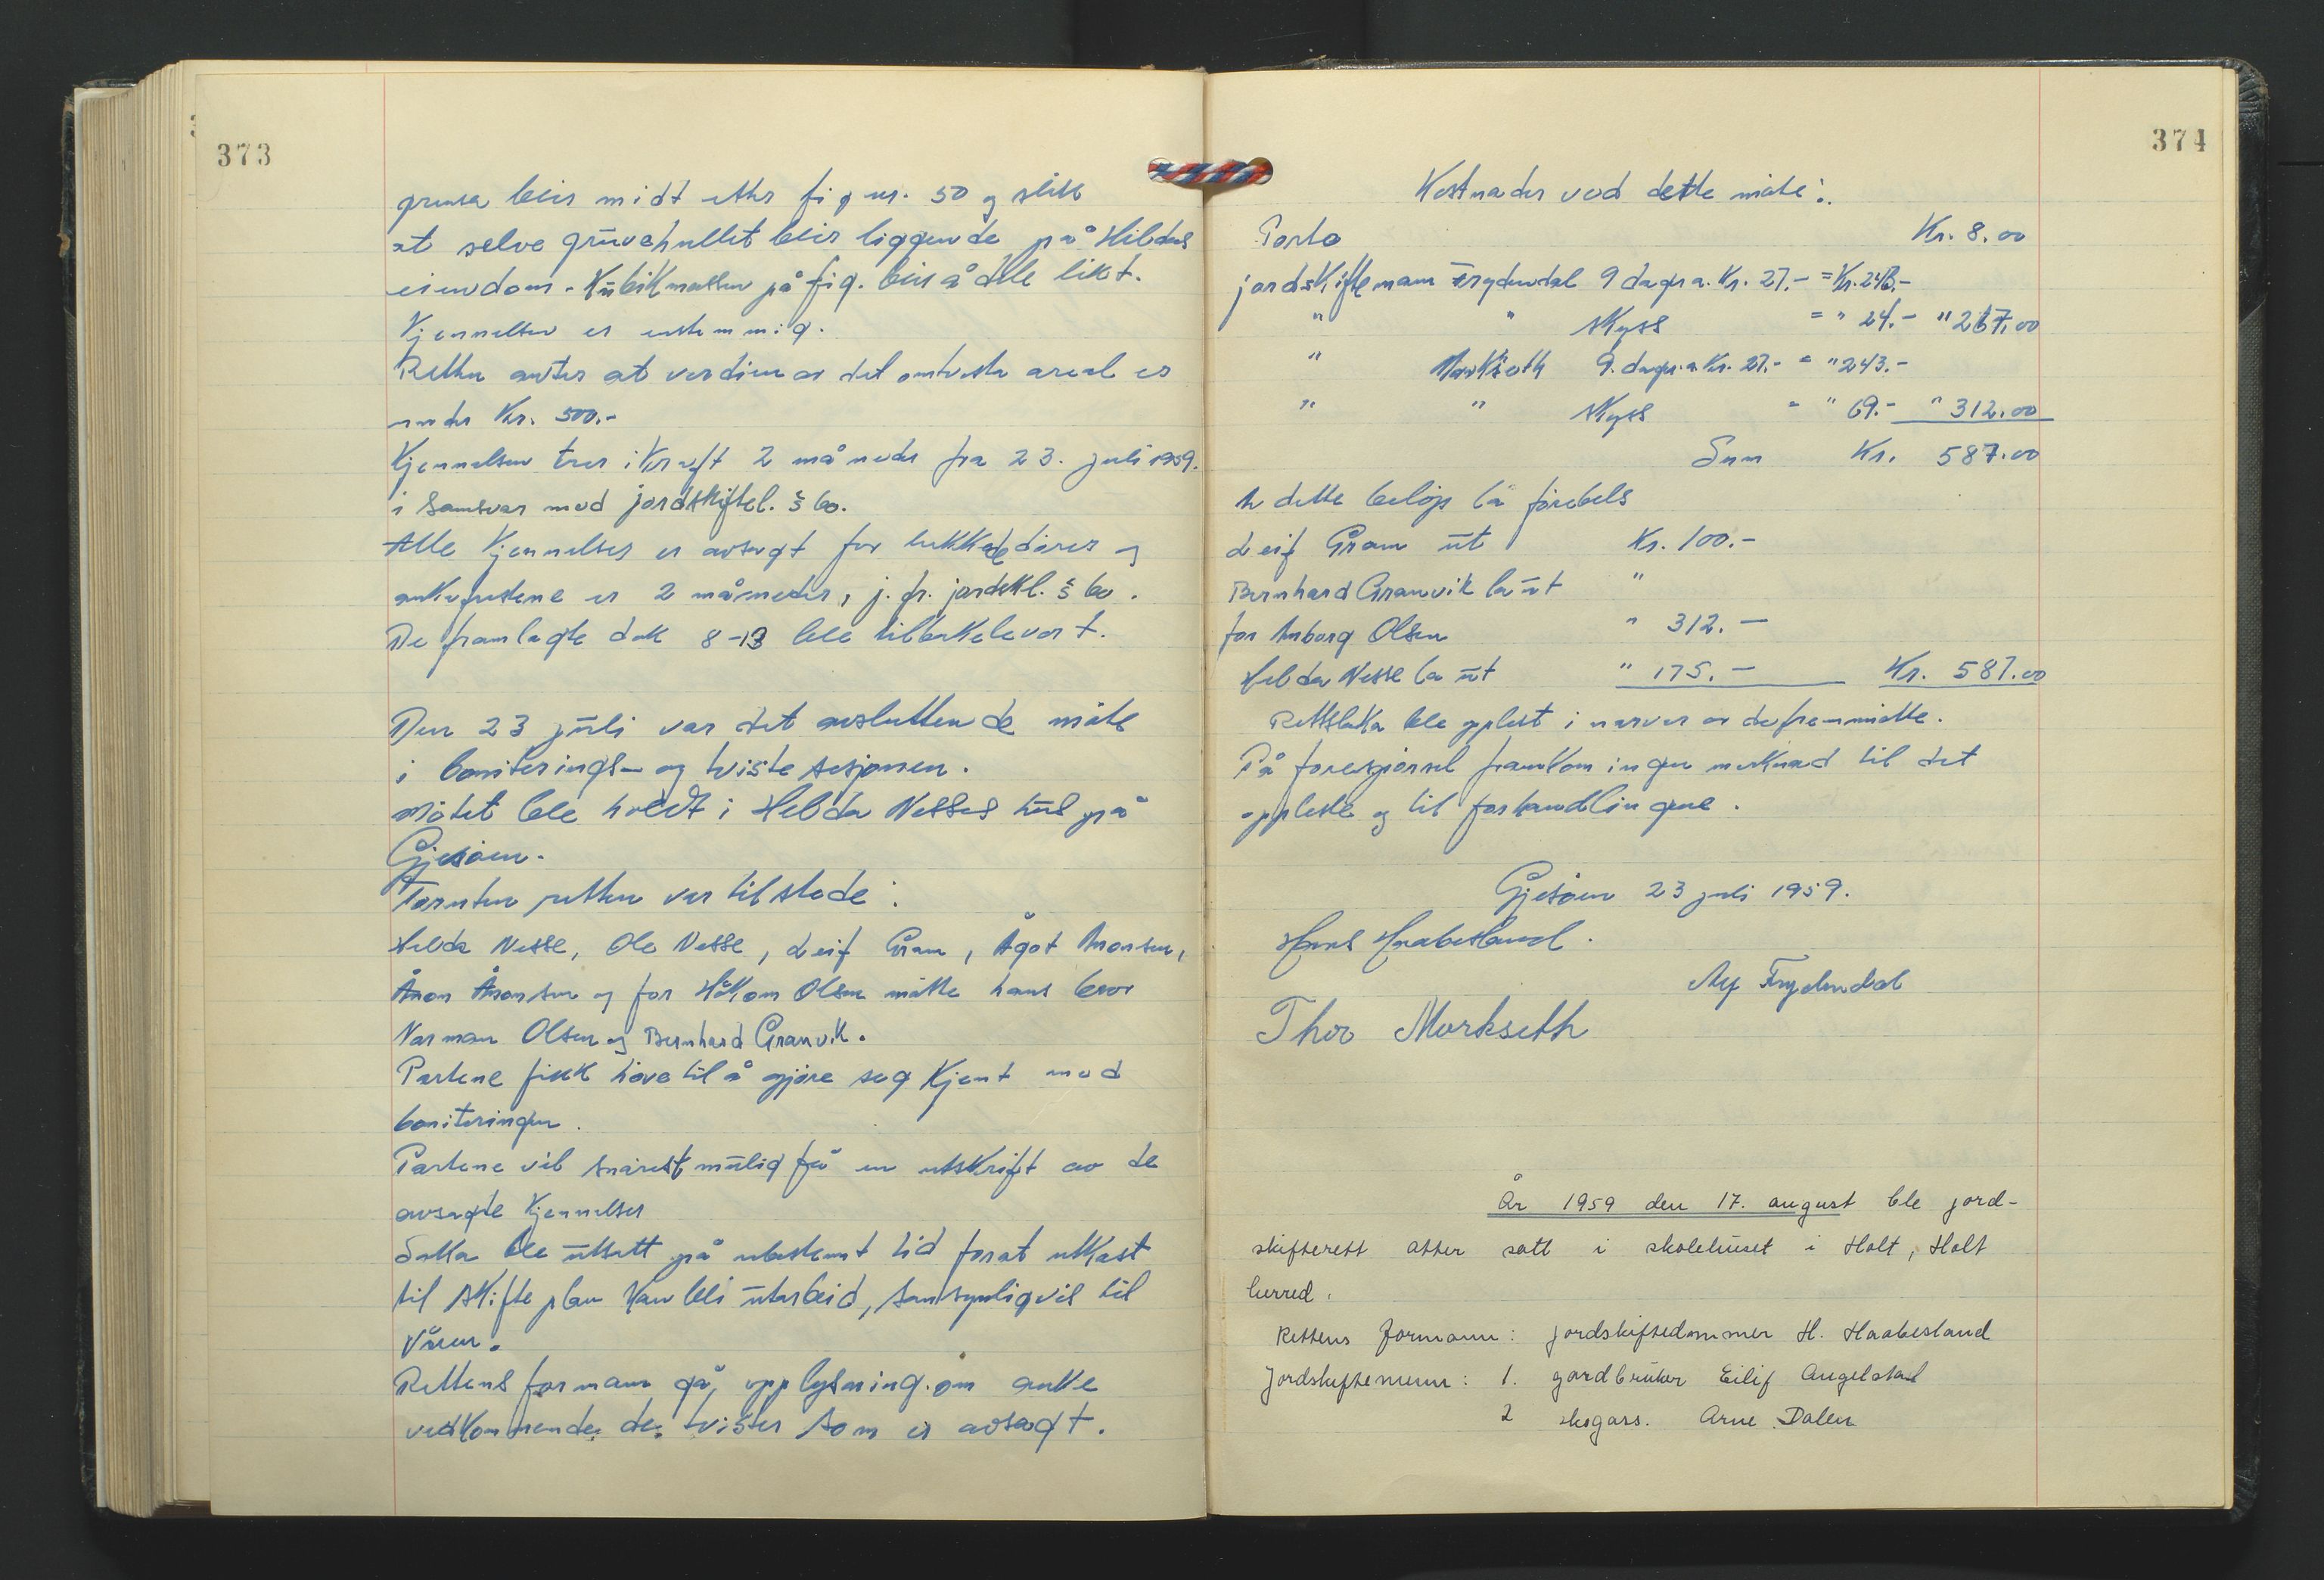 373
grensa blir midt etter fig nr. 50 og slik
at selve gruvehullet blir liggende på Hildas
eiendom. Kubikmassen på fig. blir å dele likt.
Kjennelsen er enstemmig.
Retten antar at verdien av det omtvista areal er
under Kr. 500.-
Kjennelsen trer i Kraft 2 måneder fra 23. juli 1959.
i samsvar med jordskiftel. § 60.
Alle Kjennelser er avsagt for lukkede dører og
ankefristene er 2 måneder, j. fr. jordskl. § 60.
De framlagte dok 8-13 ble tilbakelevert.
Den 23 juli var det avsluttende møte
i boniterings- og tviste sesjonen.
Møtet ble holdt i Hilda Nesses hus på
Gjesøen.
Foruten retten var tilstede:
Hilda Nesse, Ole Nesse, Leif Gram, Ågot Aronsen,
Aron Aronsen og for Håkon Olsen møtte hans bror
Norman Olsen og Bernhard Granvik.
Partene fikk høve til å gjøre seg Kjent med
boniteringen.
Partene vil snarest mulig få en utskrift av de
avsagte Kjennelser
Saka ble utsatt på ubestemt tid forat utkast
til skifteplan Kan bli utarbeid, sansynligvis til
Våren.
Rettens formann ga, opplysning om anke
vedkommende de tvister som er avsagt.
374
Kostnader ved dette møte:
Porto Kr. 8.00
jordskiftemann Frydendal 9 dagr a. Kr. 27.- = Kr. 243.-
" " Skyss = " 24.- " 267.00
" Morkseth 9. dagr. a Kr. 27.- = " 243.-
" " Skyss = " 69.- " 312.00
Sum Kr. 587.00
Av dette beløp la førebels
Leif Gram ut Kr. 100.-
Bernhard Granvik la ut "
for Anborg Olsen " 312.-
Hilda Nesse la ut " 175.- Kr. 587.00
Rettsboka ble opplest i nærver av de fremmøtte.
På forespørsel framkom ingen merknad til det
oppleste og til forhandlingene.
Gjesøen 23 juli 1959.
Hans Haabesland.
Alf Frydendal
Thor Morkseth
År 1959 den 17. august ble jord-
skifterett atter satt i skolehuset i Holt, Holt
herred.
Rettens formann: jordskiftedommer H. Haabesland
Jordskiftemenn: 1. gardbruker Eilif Angelstad
2 skogars. Arne Dalen